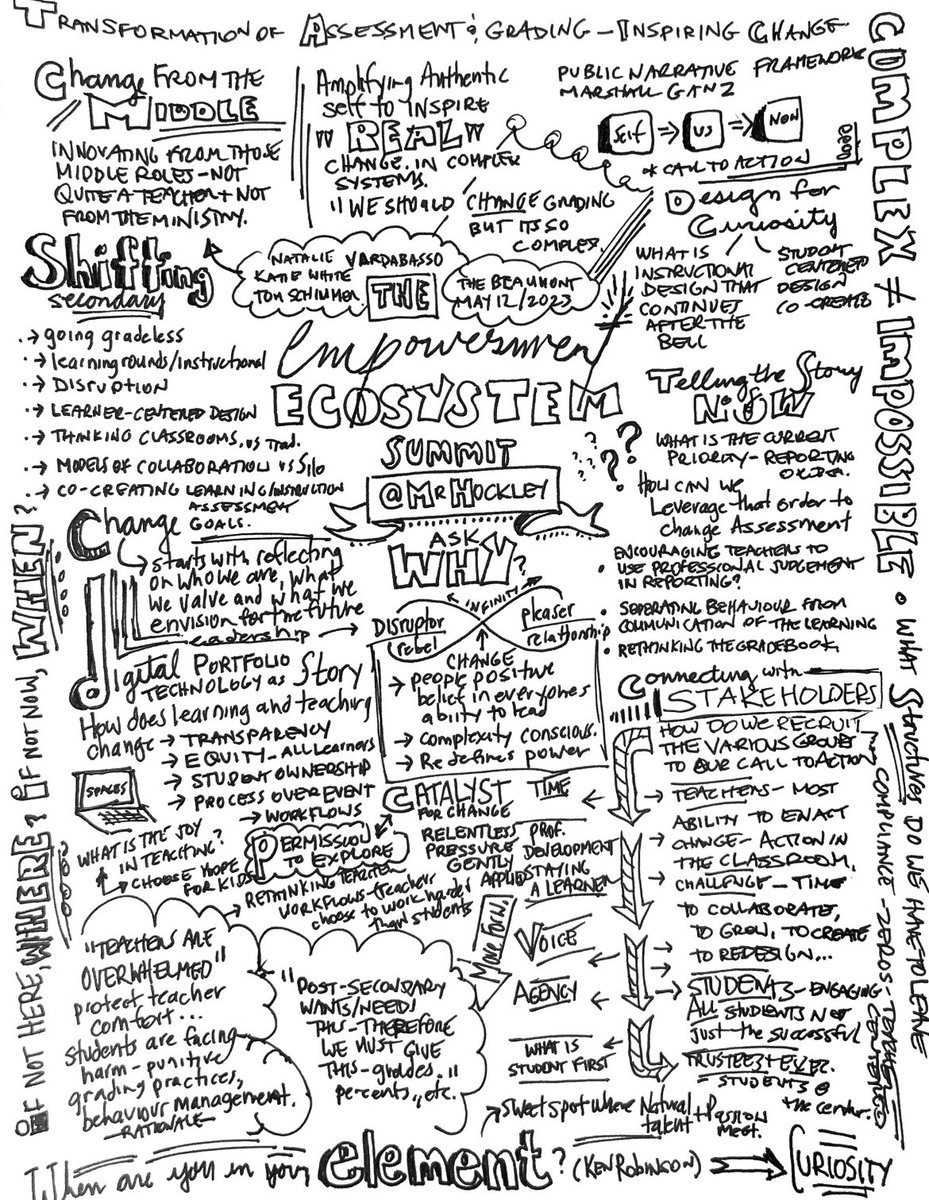 TRANSFORMATION OF ASSESSMENT & GRADING – INSPIRING CHANGE
Change FROM THE
MIDDLE
INNOVATING FROM THOSE
MIDDLE ROLES – NOT
QUITE A TEACHER + NOT
FROM THE MINISTRY.
Amplifying Authentic
self to INSPIRE
"REAL"
CHANGE. IN COMPLEX
SYSTEMS.
"WE SHOULD CHANGE GRADING
BUT ITS SO
COMPLEX.
PUBLIC NARRATIVE FRAMEWORK
MARSHALL GANZ
Self ⇒ US ⇒ NOW
* CALL TO ACTION
Design for
Curiosity
WHAT IS
INSTRUCTIONAL
DESIGN THAT
CONTINUES
AFTER THE
BELL
STUDENT
CENTERED
DESIGN
CO-CREATE
COMPLEX ≠ IMPOSSIBLE • WHAT Structures DO WE HAVE TO LEAVE
NATALIE VARDABASSO
KATIE WHITE
TOM SCHIMMER
THE BEAUMONT
MAY 12/2023
THE
Empowerment
ECOSYSTEM
SUMMIT
@MRHOCKLEY
Shifting
secondary
→ going gradeless
→ learning rounds/instructional
→ DISRUPTION
→ LEARNER-CENTERED DESIGN
→ THINKING CLASSROOMS. vs Trad.
→ MODELS OF COLLABORATION vs Silo
→ CO-CREATING LEARNING/INSTRUCTION
ASSESSMENT
GOALS.
Telling the Story
NOW
WHAT IS THE CURRENT
PRIORITY – REPORTING
ORDER.
• HOW CAN WE
Leverage that order to
change Assessment
ENCOURAGING TEACHERS TO
• USE PROFESSIONAL JUDGEMENT
IN REPORTING?
• SEPERATING BEHAVIOUR FROM
COMMUNICATION OF THE LEARNING
• RETHINKING THE GRADEBOOK
Change
→ starts with reflecting
on who we are, what
we value and what we
envision for the future
leadership →
ASK
WHY?
INFINITY
Disruptor
rebel
pleaser
relationship
CHANGE
→ people positive
belief in everyones
ability to lead
→ complexity conscious.
→ Redefines power
Digital PORTFOLIO
TECHNOLOGY as Story
How does learning and teaching
change → TRANSPARENCY
→ EQUITY – ALL Learners
→ STUDENT OWNERSHIP
→ PROCESS OVER EVENT
→ WORKFLOWS
SPACES
WHAT IS THE JOY
IN TEACHING?
CHOOSE HOPE
FOR KIDS
PERMISSION
TO EXPLORE
→ RETHINKING TEACHER
WORKFLOWS – teachers
choose to work harder
than students
CATALYST
FOR CHANGE
RELENTLESS
PRESSURE
GENTLY
APPLIED
TIME
PROF.
DEVELOPMENT
STAYING
A LEARNER
Move Forward
VOICE
AGENCY
WHAT IS
STUDENT FIRST
Connecting with
STAKEHOLDERS
HOW DO WE RECRUIT
THE VARIOUS GROUPS
TO OUR CALL TO ACTION
→ TEACHERS – MOST
ABILITY TO ENACT
→ CHANGE – ACTION IN
THE CLASSROOM.
→ CHALLENGE – TIME
TO COLLABORATE,
TO GROW, TO CREATE
→ TO REDESIGN...
→ STUDENTS – ENGAGING
ALL STUDENTS NOT
just the successful
TRUSTEES + EVER.
– STUDENTS @
the center.
COMPLIANCE – ZEROS – TEACHER CENTERED
"TEACHERS ARE
OVERWHELMED"
protect teacher
comfort...
students are facing
harm – punitive
grading practices,
behaviour management.
RATIONALE
"POST-SECONDARY
WANTS/NEEDS
THIS – THEREFORE
WE MUST GIVE
THIS – grades."
percents, etc.
IF NOT HERE, WHERE? IF NOT NOW, WHEN?
→ sweet spot where Natural
talent + PASSION
meet.
When are you in your element? (KEN ROBINSON) ⇒ CURIOSITY